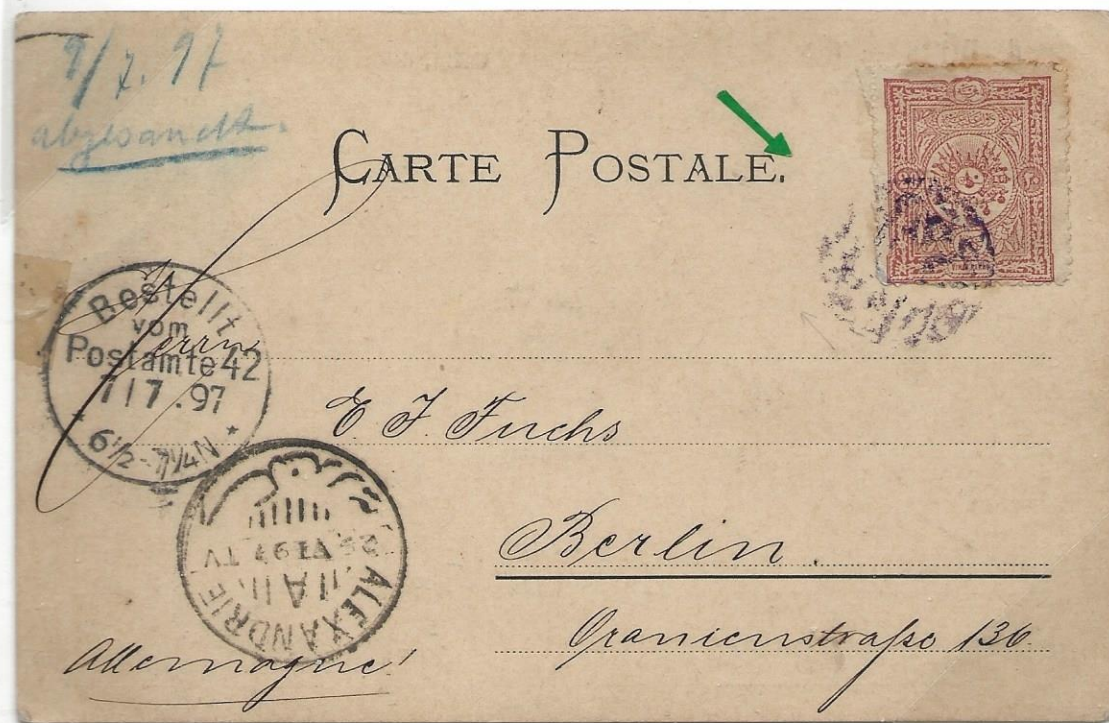 9/7.97
abgesandt.
CARTE POSTALE.
Bestellt
vom
Postamte 42
7/7.97
6½-7¼N
Herrn
E. J. Fuchs
Berlin
Oranienstraße 136
ALEXANDRIE
VI 97
Allemagne!